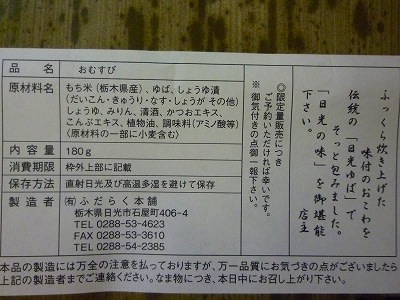 品名 おむすび
原材料名 もち米（栃木県産）、ゆば、しょうゆ漬
（だいこん・きゅうり・なす・しょうが その他）
しょうゆ、みりん、清酒、かつおエキス、
こんぶエキス、植物油、調味料（アミノ酸等）
（原材料の一部に小麦含む）
内容量 180g
消費期限 枠外上部に記載
保存方法 直射日光及び高温多湿を避けて保存
製造者 （有）ふだらく本舗
栃木県日光市石屋町406-4
TEL 0288-53-4623
FAX 0288-53-3610
TEL 0288-54-2385
ふっくら炊き上げた
味付のおこわを
伝統の「日光ゆば」で
そっと包みました。
「日光の味」を御堪能
下さい。
店主
◎限定量販売につき
ご予約いただければ幸いです。
※御気付きの点御一報下さい。
本品の製造には万全の注意を払っておりますが、万一品質にお気づきの点がございましたら
上記の製造者までご連絡ください。なま物につき、本日中にお召し上がり下さい。